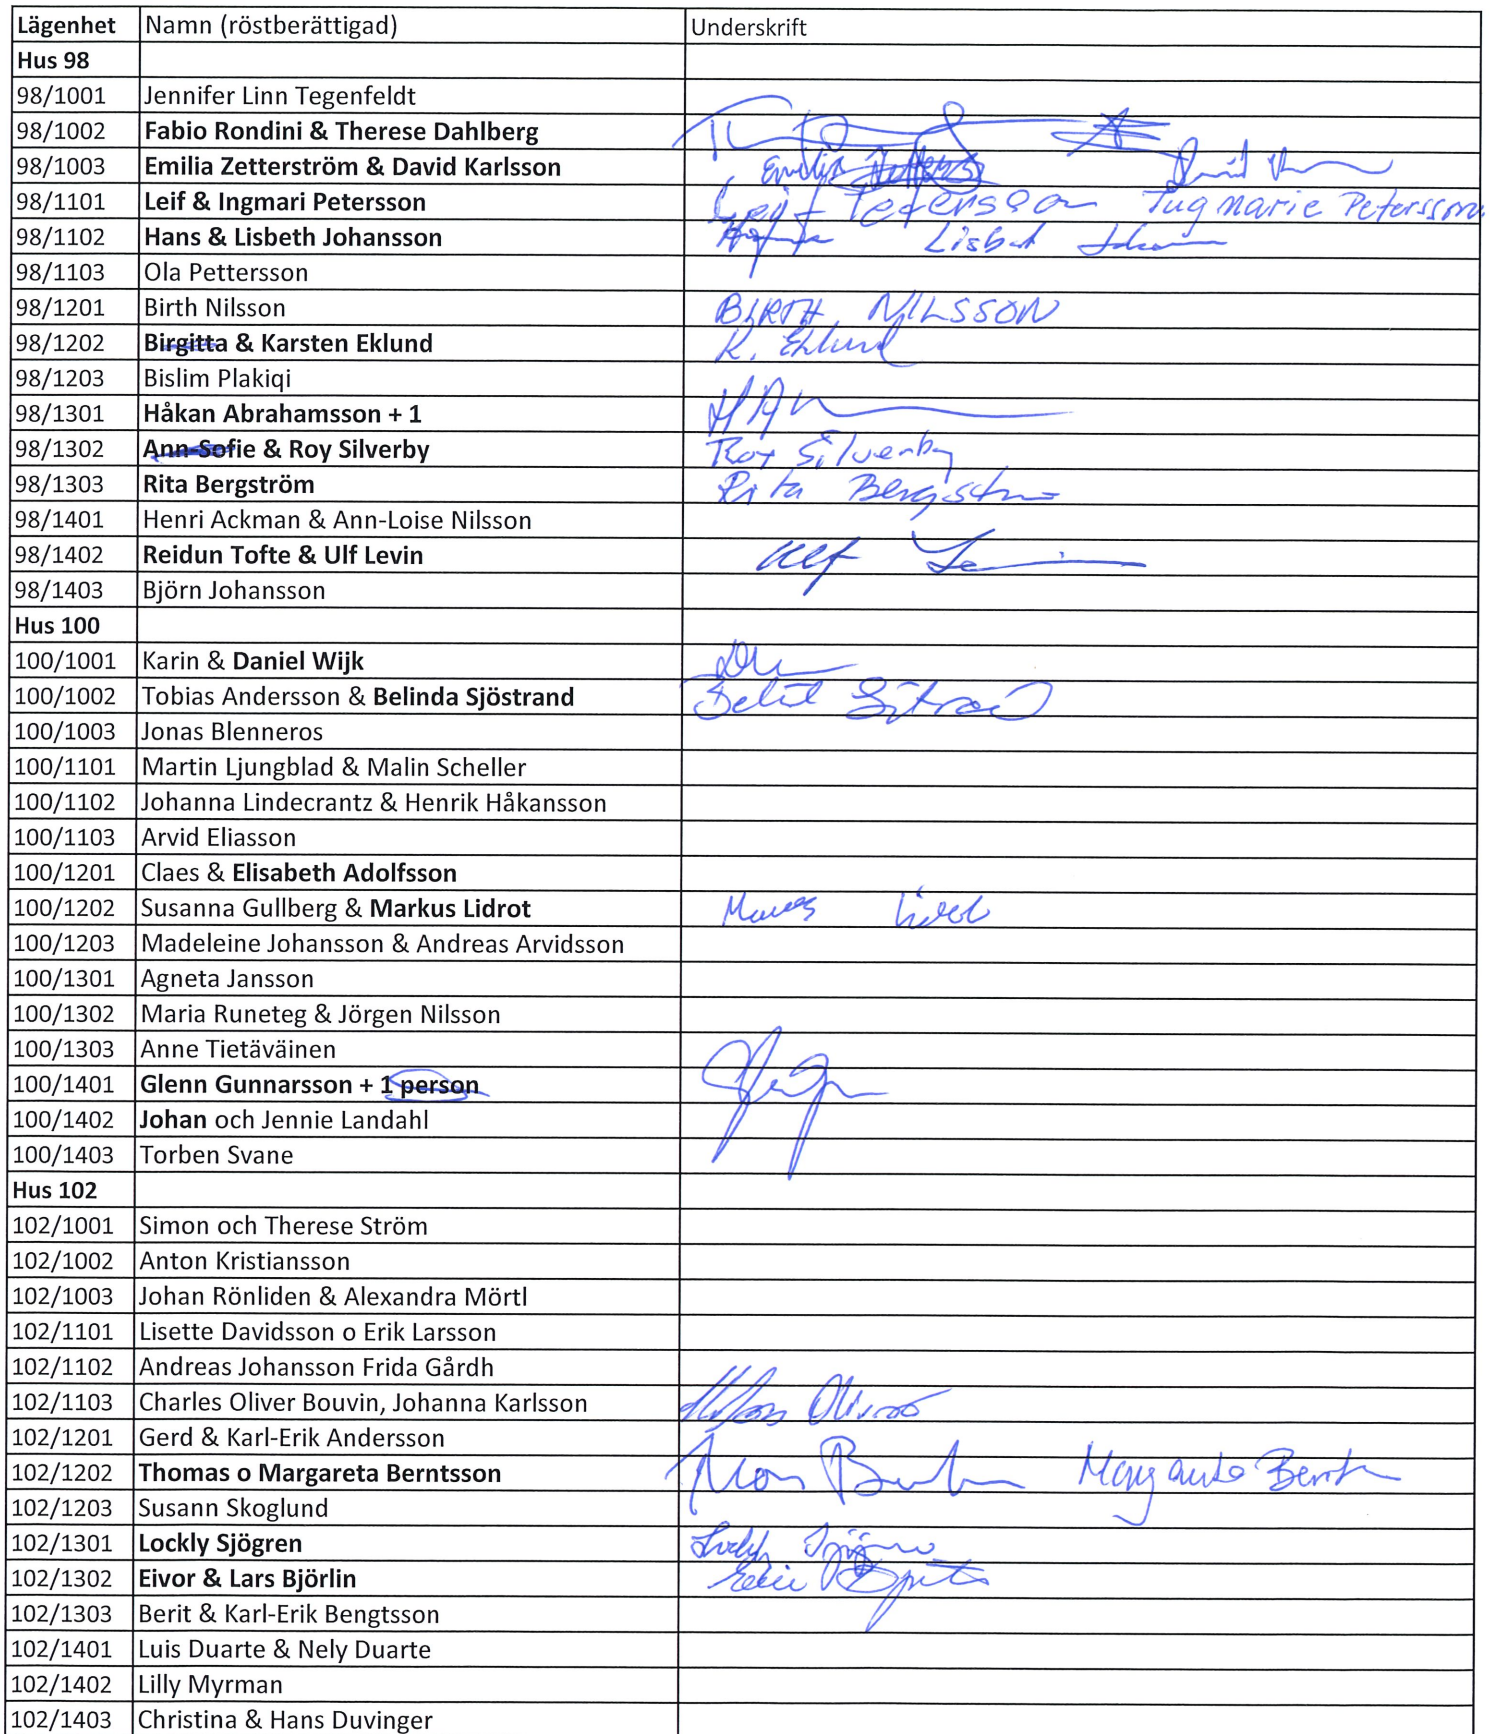 Lägenhet Namn (röstberättigad) Underskrift
Hus 98
98/1001 Jennifer Linn Tegenfeldt
98/1002 Fabio Rondini & Therese Dahlberg
98/1003 Emilia Zetterström & David Karlsson Emilia David
98/1101 Leif & Ingmari Petersson Leif Petersson Ingmarie Petersson
98/1102 Hans & Lisbeth Johansson Lisbet
98/1103 Ola Pettersson
98/1201 Birth Nilsson BIRTH NILSSON
98/1202 Birgitta & Karsten Eklund K. Eklund
98/1203 Bislim Plakiqi
98/1301 Håkan Abrahamsson + 1
98/1302 Ann-Sofie & Roy Silverby Roy Silverby
98/1303 Rita Bergström Rita Bergström
98/1401 Henri Ackman & Ann-Loise Nilsson
98/1402 Reidun Tofte & Ulf Levin Ulf Levin
98/1403 Björn Johansson
Hus 100
100/1001 Karin & Daniel Wijk
100/1002 Tobias Andersson & Belinda Sjöstrand
100/1003 Jonas Blenneros
100/1101 Martin Ljungblad & Malin Scheller
100/1102 Johanna Lindecrantz & Henrik Håkansson
100/1103 Arvid Eliasson
100/1201 Claes & Elisabeth Adolfsson
100/1202 Susanna Gullberg & Markus Lidrot
100/1203 Madeleine Johansson & Andreas Arvidsson
100/1301 Agneta Jansson
100/1302 Maria Runeteg & Jörgen Nilsson
100/1303 Anne Tietäväinen
100/1401 Glenn Gunnarsson + 1 person
100/1402 Johan och Jennie Landahl
100/1403 Torben Svane
Hus 102
102/1001 Simon och Therese Ström
102/1002 Anton Kristiansson
102/1003 Johan Rönliden & Alexandra Mörtl
102/1101 Lisette Davidsson o Erik Larsson
102/1102 Andreas Johansson Frida Gårdh
102/1103 Charles Oliver Bouvin, Johanna Karlsson
102/1201 Gerd & Karl-Erik Andersson
102/1202 Thomas o Margareta Berntsson Margareta Berntsson
102/1203 Susann Skoglund
102/1301 Lockly Sjögren Lockly Sjögren
102/1302 Eivor & Lars Björlin
102/1303 Berit & Karl-Erik Bengtsson
102/1401 Luis Duarte & Nely Duarte
102/1402 Lilly Myrman
102/1403 Christina & Hans Duvinger